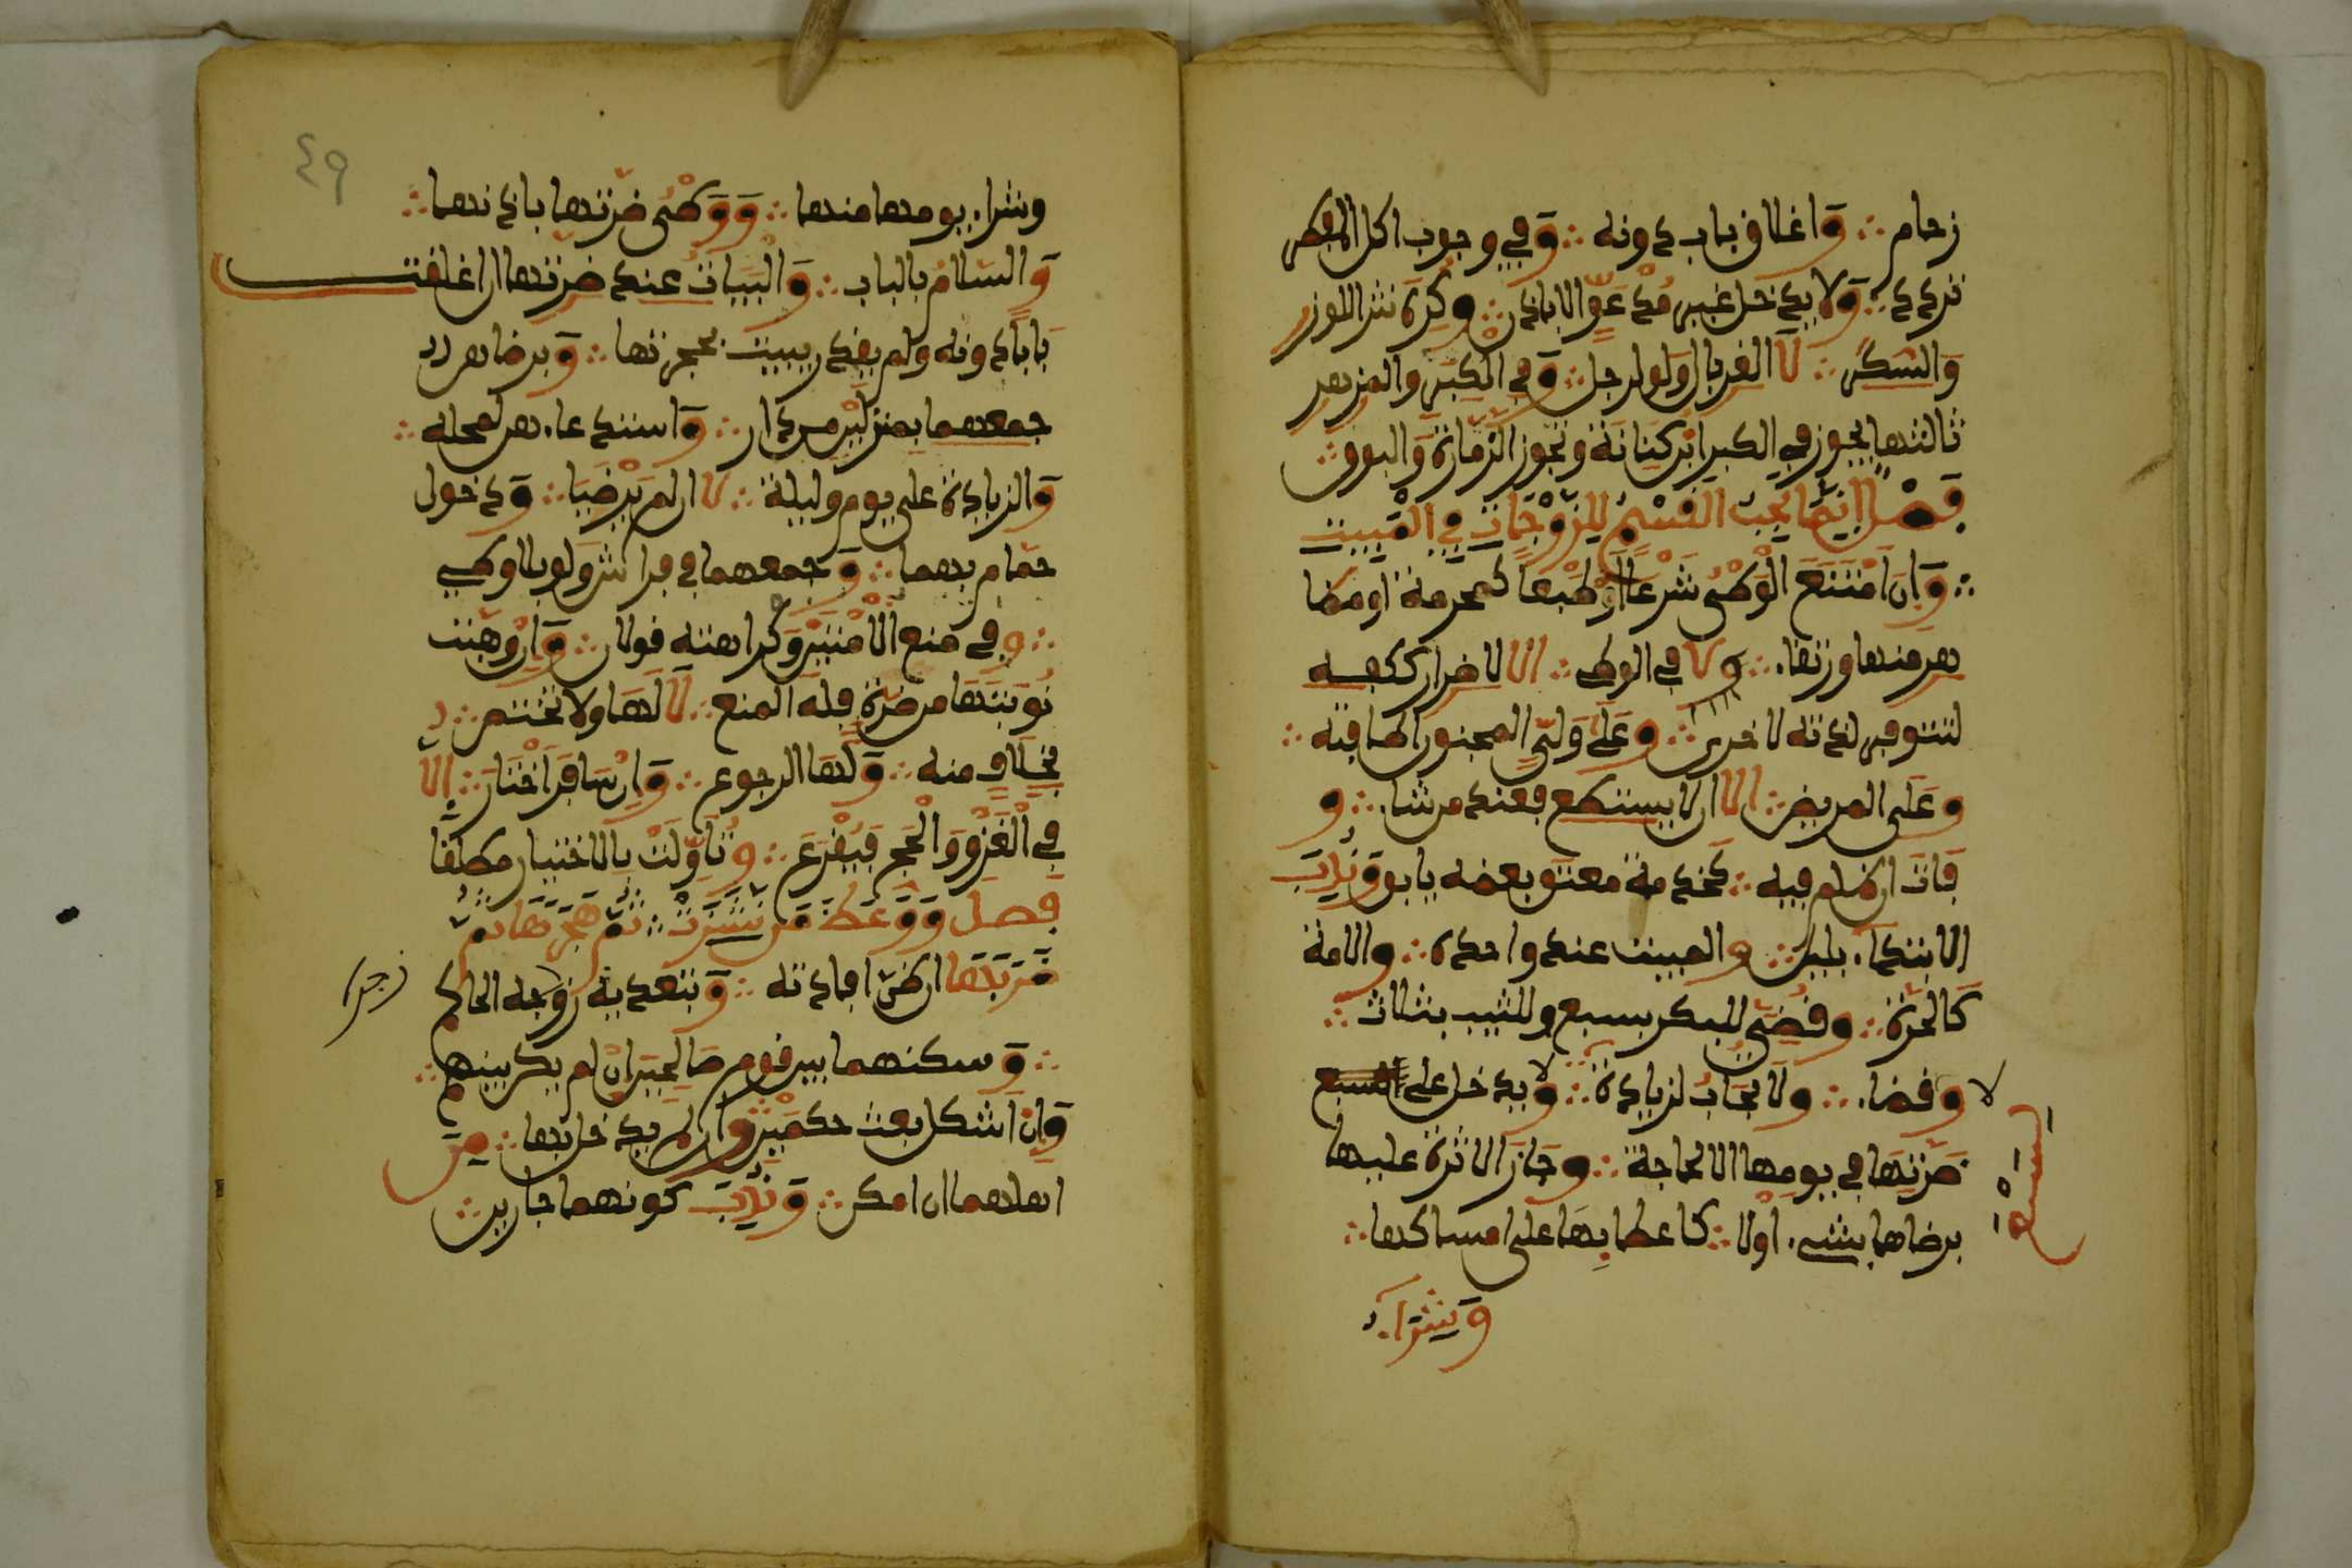 زحام ∴ وَاغلاق باب دونه ∴ وَفي وجوب اكل المفطر
تردد ∴ وَلا يدخل غير مدعوّ الا باذن ∴ وكُرِه نثر اللوز
وَالسكّر ∴ لَا الغربال وَلو لرجل ∴ وَفي الكَبَر والمزهر
ثالثها يجوز في الكبر ابن كنانة وتجوز الزمّارة وَالبوق ∴
فَصْل انّمَا يجب القَسْم للزّوْجَات في المَبيت
∴ وَان امْتنَعَ الوَطْئ شَرْعاً اَوْ طَبْعا كمحرمة او مظا
هر منها ورتقاء ∴ ولا في الوطء ∴ الا لاضرار ككفه
لتتوفر لذته لاخرى ∴ وعَلَى وَليّ المجنون اطافته ∴
وعَلى المريض ∴ الا ان لا يستطع فعند من شاء ∴ و
فَات ان ظلم فيه ∴ كخدمة معتق بعضه يابق ونُدِبَ
الابتداء بليل ∴ والمبيت عند واحدة ∴ والامة
كَالحرّة ∴ وقُضِي للبكر بسبع وللثيب بثلاث ∴
لا وقضاء ∴ ولا تجَابُ لزيادة ∴ ولا يدخل على السبع
ضَرّتهَا في يومها الا لحاجة ∴ وجَازَ الاثرة عليها
برضاها بشيء اولا ∴ كاعطائِهَا على امساكها ∴
وَشراء
وشراء يومها منها ∴ وَوَطْئ ضرّتها باذنها ∴
وَالسّلامُ بالباب ∴ وَالْبَيَاتُ عند ضرّتها ان اغلقت
بَابا دونه ولم يقدر يبيت بحجرتها ∴ وَبرضاهن
جمعهما بمنزلَيْن من دار ∴ وَاستدعاءهن لمحله ∴
وَالزيادة على يوم وليلة ∴ لا ان لم يَرْضَيَا ∴ وَدخول
حمّام بهما ∴ وَجمعهما في فراش ولو بلا وطء
∴ وفي منع الامتَيْن وكراهته قولان ∴ وَان وهَبَت
نَوبَتَهَا من ضرّة فله المنع ∴ لا لَهَا ولا تختص ∴
بخلاف منه ∴ وَلها الرجوع ∴ وَان سَافَرَ اخْتَارَ ∴ الا
في الغَزْو وَالْحَج فَيُقْرع ∴ وتؤوّلت بالاختيار مطلقا
فصل وَوَعظَ مَن نَشَزَتْ ∴ ثمّ هَجَرَهَا ثمّ
ضَرَبَهَا ان ظنّ افادته ∴ وَبتعديه زوجه الحاكم
زجره
∴ وَسكنهما بين قوم صَالحينَ ان لم يكن بينهم ∴
وَان اشكل بعث حكمَيْن وان لم يدخل بها ∴ مِن
اهلهما ان امكن ∴ وَنُدِبَ كونهما جارين ∴